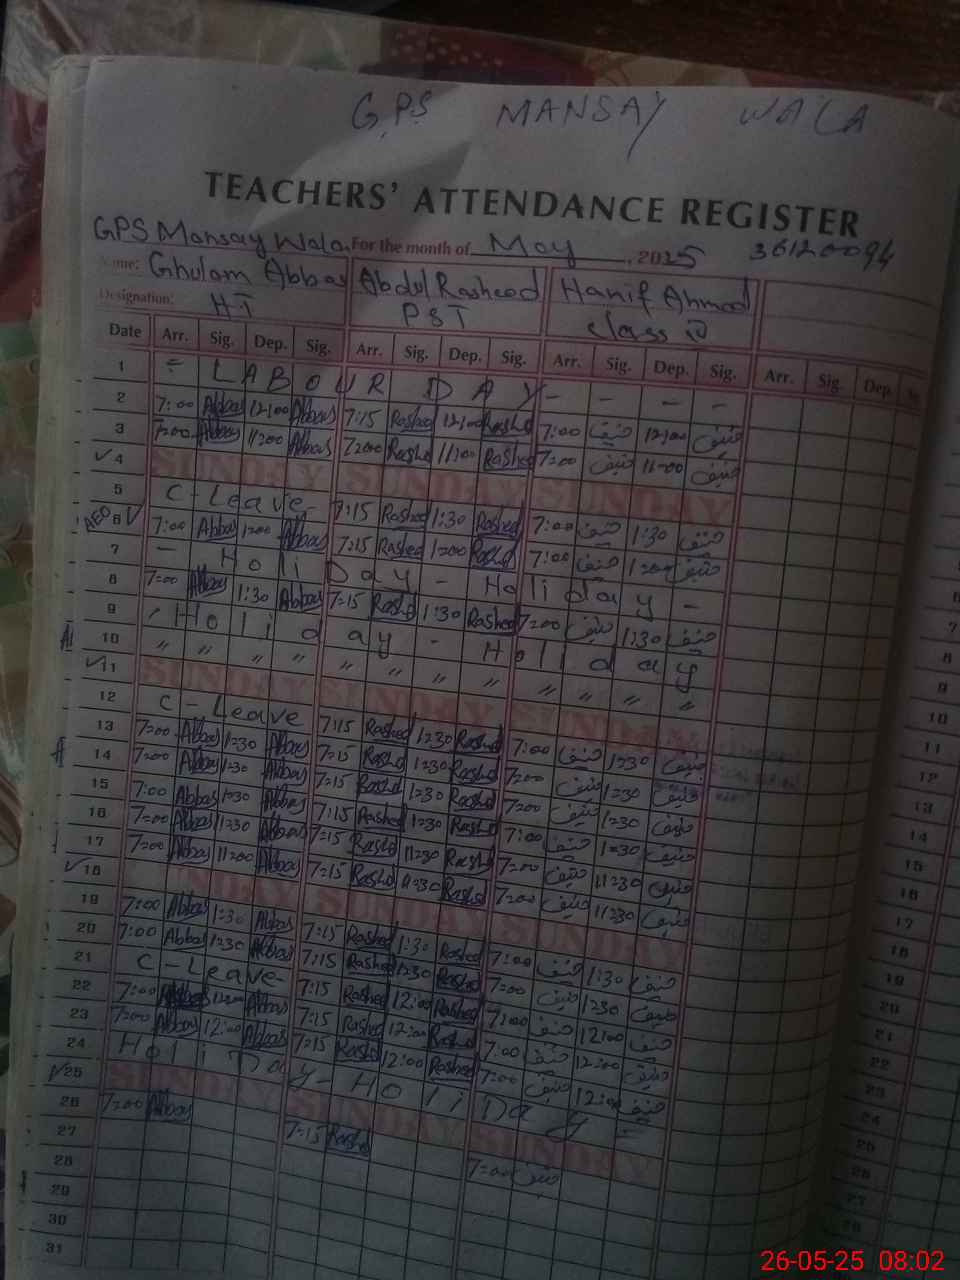 G.P.S MANSAY WALA
TEACHERS' ATTENDANCE REGISTER
GPS Mansay Wala For the month of May, 2025 36120094
Name: Ghulam Abbas Abdul Rasheed Hanif Ahmad
Designation: H-T PST Class iv
Date Arr. Sig. Dep. Sig. Arr. Sig. Dep. Sig. Arr. Sig. Dep. Sig. Arr. Sig. Dep.
1 = LABOUR DAY - - - -
2 7:00 Abbas 12:00 Abbas 7:15 Rashed 12:00 Rashed 7:00 حنیف 12:00 حنیف
3 7=00 Abbas 11=00 Abbas 7=00 Rashed 11:00 Rashed 7=00 حنیف 11-00 حنیف
4 SUNDAY SUNDAY SUNDAY
5 C-Leave 7:15 Rashed 1:30 Rashed 7:00 حنیف 1:30 حنیف
AEO 6 7:00 Abbas 1=00 Abbas 7:15 Rashed 1=00 Rashed 7:00 حنیف 1=00 حنیف
7 - Holi Day - Holi day -
8 7=00 Abbas 1:30 Abbas 7=15 Rashed 1:30 Rashed 7=00 حنیف 1:30 حنیف
9 Holiday - Holiday
10 " " " " " " " " " " " "
11 SUNDAY SUNDAY SUNDAY
12 C-Leave 7:15 Rashed 1=30 Rashed 7:00 حنیف 1=30 حنیف
13 7=00 Abbas 1=30 Abbas 7=15 Rashed 1=30 Rashed 7=00 حنیف 1=30 حنیف
14 7=00 Abbas 1=30 Abbas 7=15 Rashed 1=30 Rashed 7=00 حنیف 1=30 حنیف
15 7:00 Abbas 1=30 Abbas 7:15 Rashed 1=30 Rashed 7:00 حنیف 1=30 حنیف
16 7=00 Abbas 11=30 Abbas 7=15 Rashed 11=30 Rashed 7=00 حنیف 11=30 حنیف
17 7=00 Abbas 11=00 Abbas 7=15 Rashed 11=30 Rashed 7=00 حنیف 11=30 حنیف
18 SUNDAY SUNDAY SUNDAY
19 7:00 Abbas 1:30 Abbas 7:15 Rashed 1:30 Rashed 7=00 حنیف 1:30 حنیف
20 7:00 Abbas 1=30 Abbas 7:15 Rashed 1=30 Rashed 7=00 حنیف 1=30 حنیف
21 C-Leave 7:15 Rashed 12:00 Rashed 7:00 حنیف 12:00 حنیف
22 7:00 Abbas 12=00 Abbas 7:15 Rashed 12:00 Rashed 7:00 حنیف 12=00 حنیف
23 7=00 Abbas 12:00 Abbas 7=15 Rashed 12:00 Rashed 7=00 حنیف 12:00 حنیف
24 Holi Day - Holi Day =
25 SUNDAY SUNDAY SUNDAY
26 7=00 Abbas 7=15 Rashed 7=00 حنیف
27
28
29
30
31
26-05-25 08:02